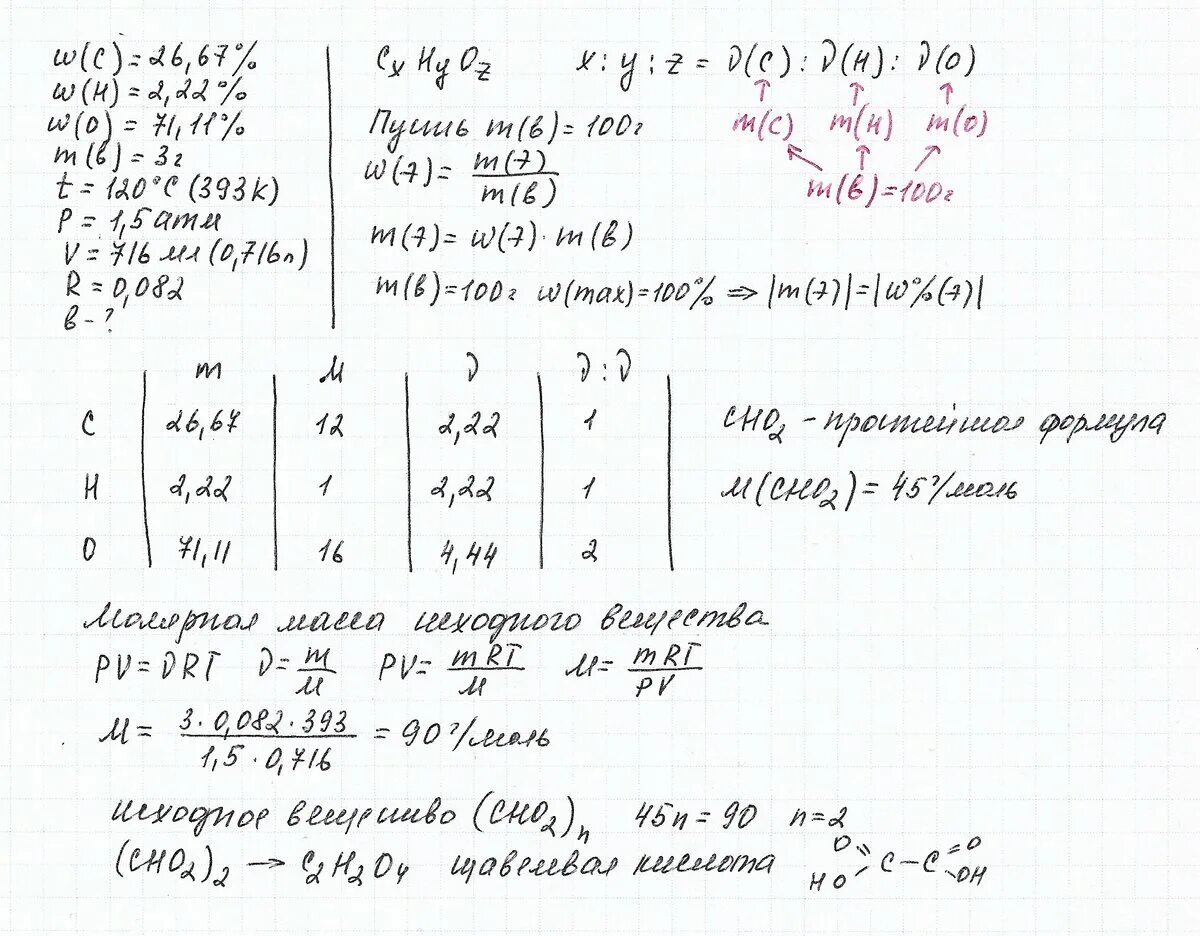 w(C) = 26,67%
w(H) = 2,22%
w(O) = 71,11%
m(в) = 3г
t = 120°C (393K)
P = 1,5 атм
V = 716 мл (0,716л)
R = 0,082
в - ?
CxHyOz x : y : z = ν(C) : ν(H) : ν(O)
m(C) m(H) m(O)
m(в) = 100г
Пусть m(в) = 100г
w(э) = m(э) / m(в)
m(э) = w(э) · m(в)
m(в) = 100г w(max) = 100% ⇒ |m(э)| = |w%(э)|
m M ν ν : ν
C 26,67 12 2,22 1
H 2,22 1 2,22 1
O 71,11 16 4,44 2
CHO2 - простейшая формула
M(CHO2) = 45 г/моль
Молярная масса исходного вещества
PV = νRT ν = m/M PV = mRT/M M = mRT/PV
M = 3 · 0,082 · 393 / 1,5 · 0,716 = 90 г/моль
исходное вещество (CHO2)n 45n = 90 n = 2
(CHO2)2 → C2H2O4 щавелевая кислота
O O
C - C
HO OH